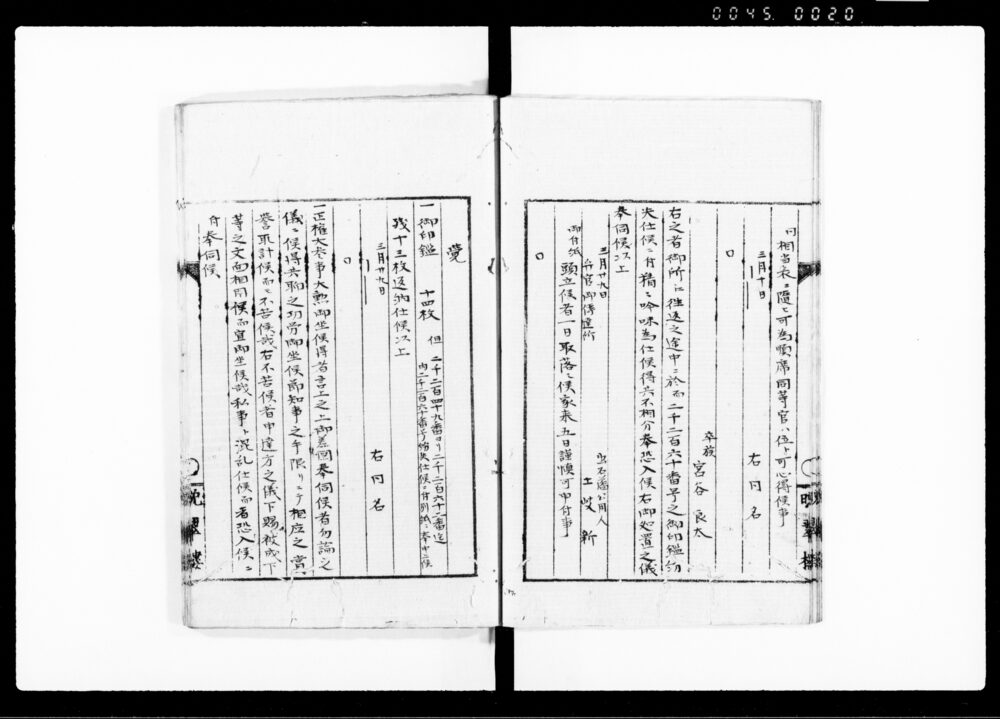 0045 0020
同相当表ニ随ヒ可為順席同等官ハ位ト可心得候事
三月十日
右同名
卒族
宮谷良太
右之者御所江往返之途中ニ於而二千二百六十番号之御印鑑紛
失仕候ニ付精々吟味為仕候得共不相分奉恐入候右御処置之儀
奉伺候以上
三月廿九日
出石藩公用人
土岐新
弁官御伝達所
御付紙 頭立候者一日取落シ候家来五日謹慎可申付事
覚
一御印鑑 十四枚 但 二千二百四十九番ヨリ二千二百六十二番迄
内二千二百六十番号紛失仕候ニ付別紙ニ奉申上候
残十三枚返納仕候以上
三月廿九日
右同名
一正権大参事大勲御坐候得者言上之上御差図奉伺候者勿論之
儀ニ候得共聊之功労御坐候節知事之手限リニテ相応之賞
誉取計候而モ不苦候哉右不苦候者申達方之儀下賜被成下
等之文面相用候而宜御坐候哉私事ト混乱仕候而者恐入候ニ
付奉伺候